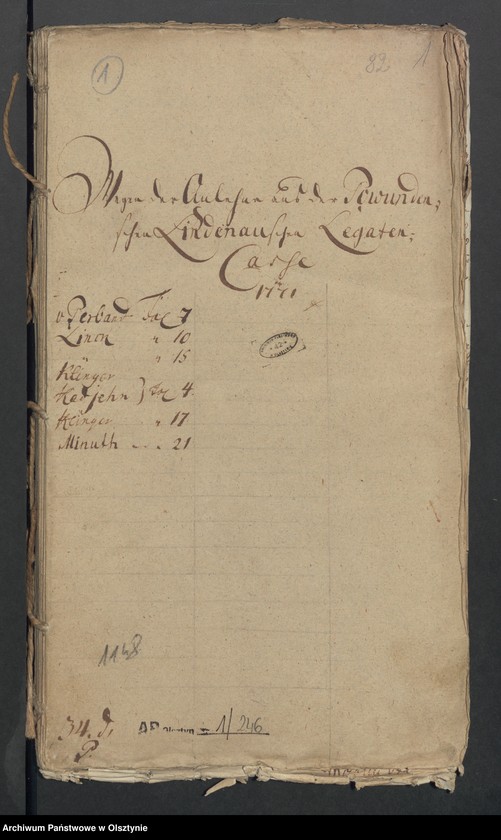 1 82 1
Wegen der Anlehne aus der Powunden,
schen Lindenauschen Legaten,
Casse
1771
v Perbandt Fol 7
Linon " 10
" 15
Klinger
Hadjehn } Fol 4
Klinger " 17
Minuth " 21
1148
34. d.
P.
AP Olsztyn 1/246
Archiwum Państwowe w Olsztynie